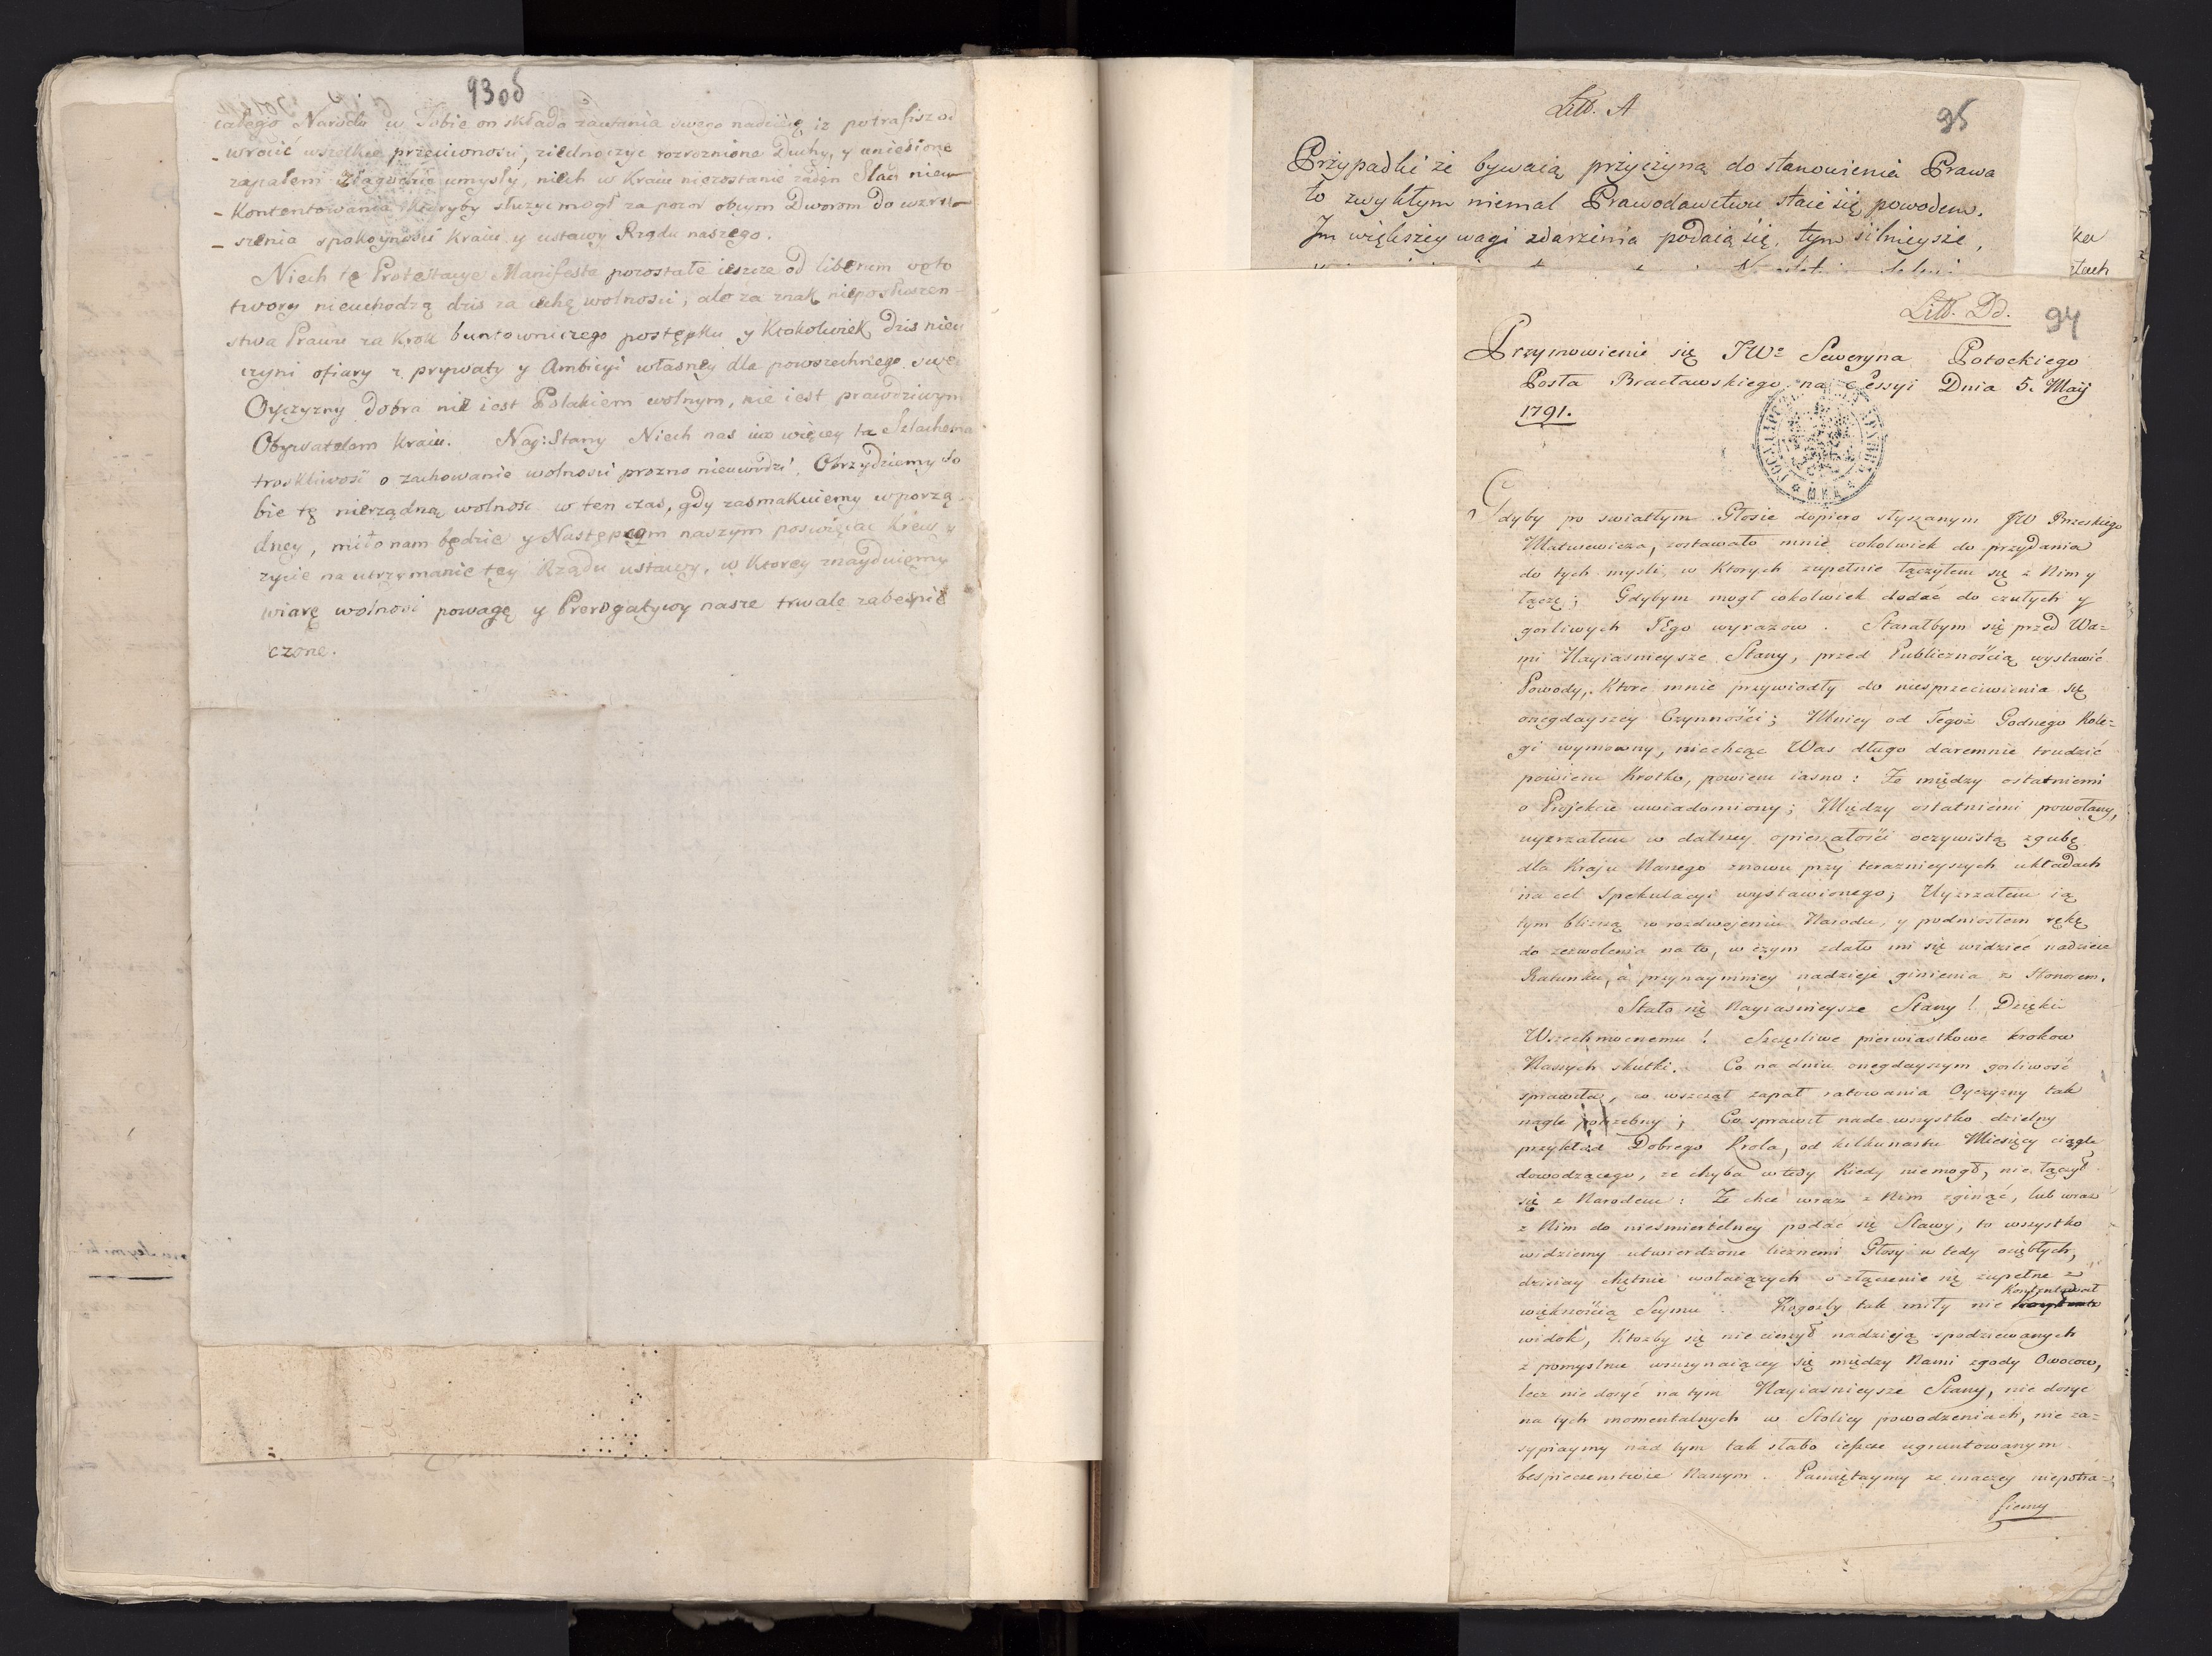 93 od
całego Narodu w Tobie on składa zaufania swego nadzieię iz potrafisz od
- wrocić wszelkie przeciwnosci, ziednoczyc rozroznione Duchy, y uniesione
zapałem złagodzic umysły, niech w Kraiu niezostanie żaden Slad nieu-
- Kontentowania ktoryby słuzyc mogł za pozor obcym Dworom do wzru-
- szenia spokoynosci Kraiu y ustawy Rządu naszego.
Niech te Protestacye Manifesta pozostałe ieszcze od liberum veto
twory nieuchodzą dzis za cechę wolnosci, ale za znak nieposłuszen-
stwa Prawu za Krok buntowniczego postępku y Ktokolwiek dzis nieu
czyni ofiary z prywaty y Ambicyi własney dla powszechnego swey
Oyczyzny dobra nie iest Polakiem wolnym, nie iest prawdziwym
Obywatelem Kraiu. Nay: Stany Niech nas iuz więcey ta Szlachetna
troskliwosc o zachowanie wolnosci prozno nieuwodzi. Obrzydziemy so
bie tę nierządną wolnosc w ten czas, gdy zasmakuiemy w porzą
dney, miło nam będzie y Następcom naszym poswięcac krew y
zycie na utrzymanie tey Rządu ustawy, w Ktorey znayduiemy
wiarę wolnosc powagę y Prerogatywy nasze trwale zabespie
czone.
Litt. A
95
Przypadki że bywaią przyczyną do stanowienia Prawa
to zwykłym niemal Prawodawctwu staie się powodem.
Im większey wagi zdarzenia podaią się, tym silnieysze,
Litt. Dd.
94
Przymowienie się JW: Seweryna Potockiego
Posła Bracławskiego na Sessyi Dnia 5. Maij
1791.
Gdyby po swiatłym Głosie dopiero słyszanym JW Brzeskiego
Matusewicza, zostawało mnie cokolwiek do przydania
do tych mysli, w Ktorych zupełnie łączyłem się z Nim y
łączę; Gdybym mogł cokolwiek dodać do czułych y
gorliwych Jego wyrazow. Starałbym się przed Wa=
mi Nayiasnieysze Stany, przed Publicznością wystawić
Powody, Ktore mnie przywiodły do niesprzeciwienia się
onegdayszey Czynności; Mniey od Tegoż Godnego Kole=
gi wymowny, niechcąc Was długo daremnie trudzić
powiem Krotko, powiem iasno: Ze między ostatniemi
o Projekcie uwiadomiony; Między ostatniemi powołany,
uyzrzałem w dalszey opieszałości oczywistą zgubę
dla Kraju Naszego znowu przy teraznieyszych układach
na cel Spekulacyi wystawionego; Uyzrzałem ią
tym bliszą w rozdwojeniu Narodu, y podniosłem rękę
do zezwolenia na to, w czym zdało mi się widzieć nadzieie
Ratunku, a przynaymniey nadzieję ginienia z Honorem.
Stało się Nayiasnieysze Stany! Dzięki
Wszechmocnemu! Szczęsliwe pierwiastkowe krokow
Naszych skutki. Co na dniu onegdayszym gorliwość
sprawiła, co wszczął zapał ratowania Oyczyzny tak
nagle potrzebny; Co sprawił nade wszystko dzielny
przykład Dobrego Krola, od kilkunastu Miesięcy ciągle
dowodzącego, ze chyba wtedy Kiedy niemogł, nie łączył
się z Narodem: Ze chce wraz z Nim zginąć, lub wraz
z Nim do niesmiertelney podać się Sławy, to wszystko
widziemy utwierdzone licznemi Głosy w tedy oziębłych,
dzisiay chętnie wołaiących o złączenie się zupełne z
większością Seymu. Kogozby tak miły nie Kontentował
widok, Ktozby się nie cieszył nadzieją spodziewanych
z pomyslnie wszczynaiącey się między Nami zgody Owocow,
lecz nie dosyć na tym Nayiasnieysze Stany, nie dosyc
na tych momentalnych w Stolicy powodzeniach, nie za=
sypiaymy nad tym tak słabo ieszcze ugruntowanym
bespieczenstwie Naszym. Pamiętaymy ze inaczey niepotra=
fiemy